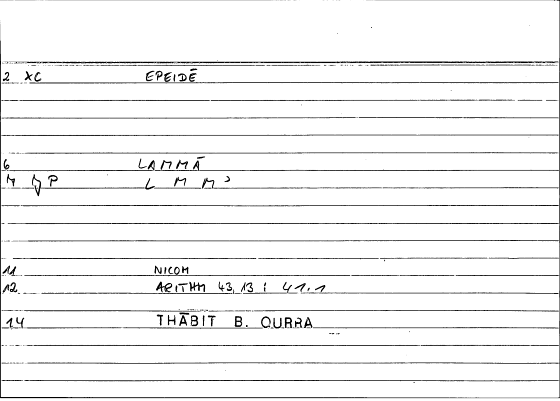 2 XC EPEIDĒ
6 LAMMĀ
P L M M ʾ
11 NICOM
12 ARITHM 43,13 : 41.1
14 THĀBIT B. QURRA